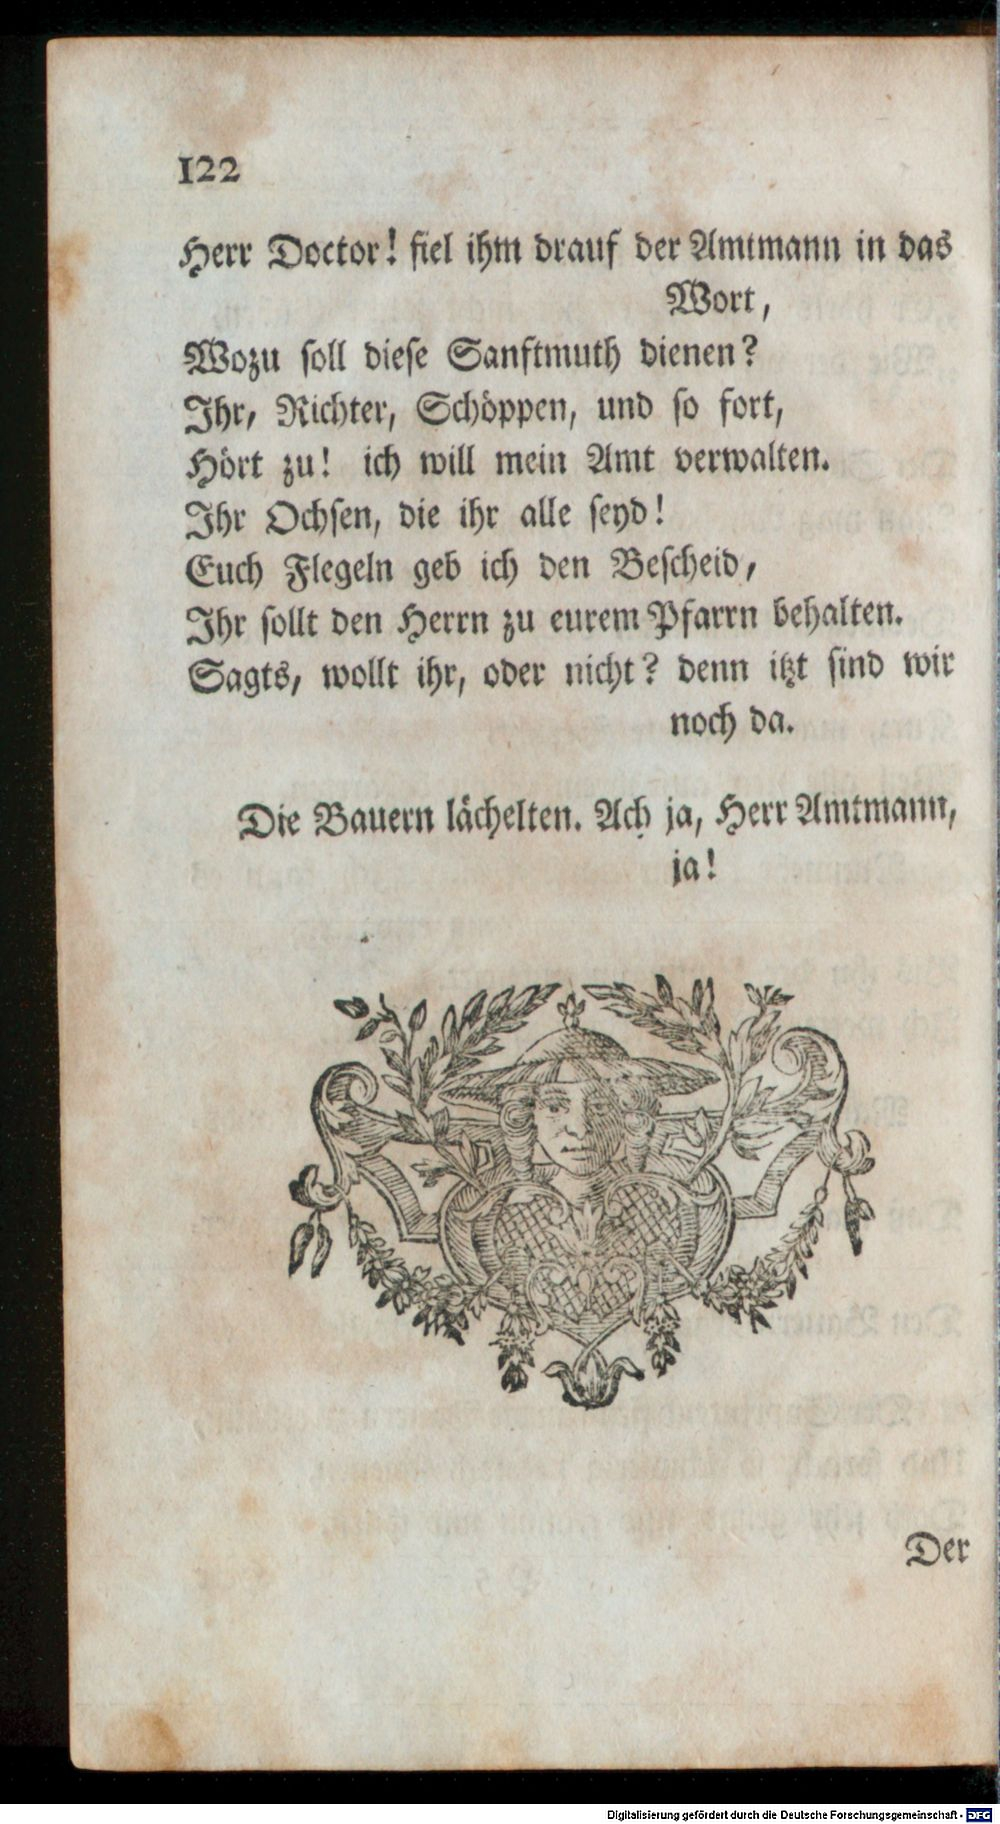 122
Herr Doctor! fiel ihm drauf der Amtmann in das
Wort,
Wozu soll diese Sanftmuth dienen?
Ihr, Richter, Schöppen, und so fort,
Hört zu! ich will mein Amt verwalten.
Ihr Ochsen, die ihr alle seyd!
Euch Flegeln geb ich den Bescheid,
Ihr sollt den Herrn zu eurem Pfarrn behalten.
Sagts, wollt ihr, oder nicht? denn itzt sind wir
noch da.
Die Bauern lächelten. Ach ja, Herr Amtmann,
ja!
Der
Digitalisierung gefördert durch die Deutsche Forschungsgemeinschaft - DFG